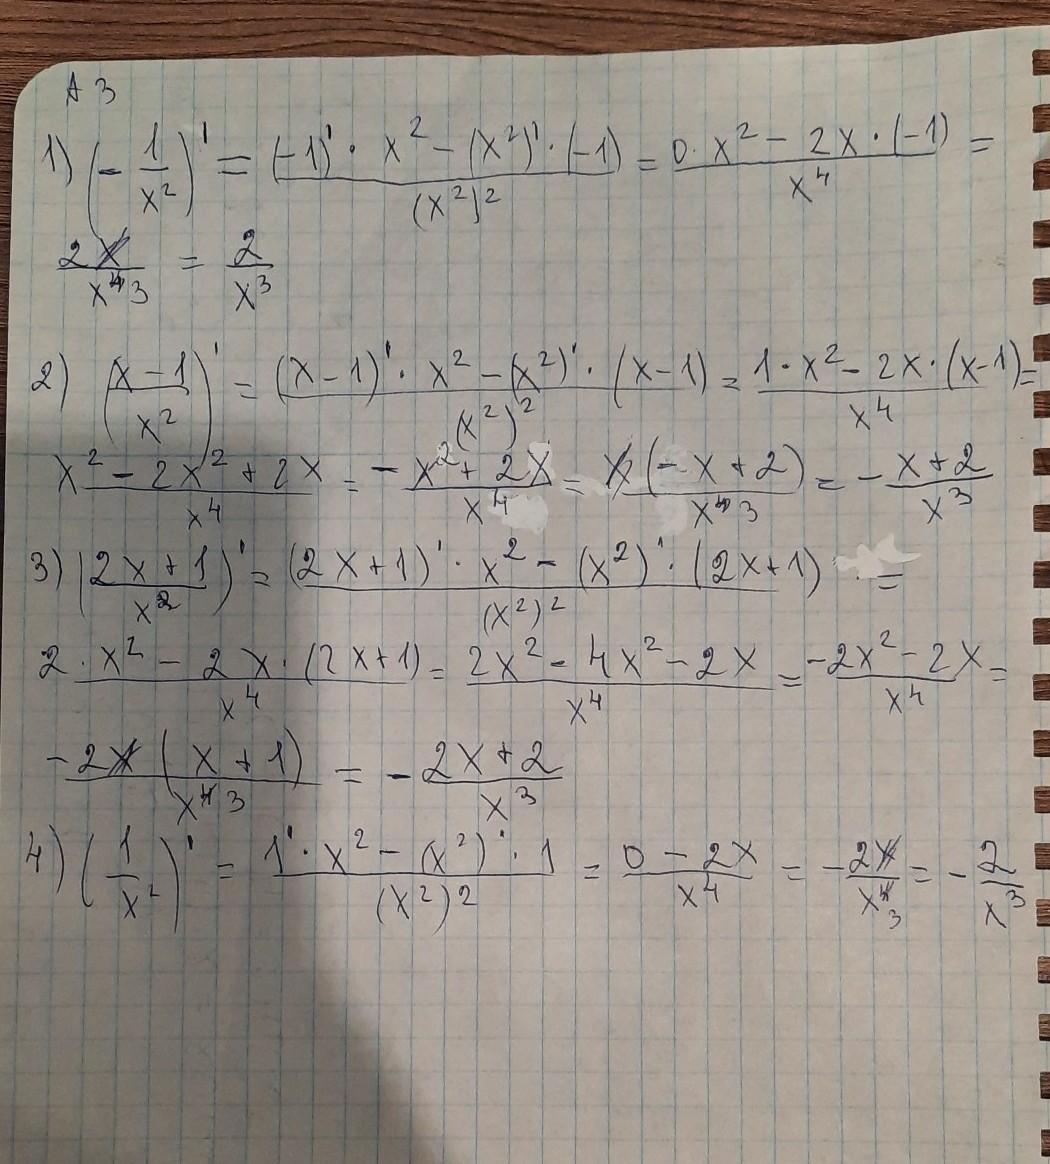 А 3
1) (- 1/x²)' = ((-1)' · x² - (x²)' · (-1))/(x²)² = (0 · x² - 2x · (-1))/x⁴ =
2x/x⁴ 3 = 2/x³
2) ((x - 1)/x²)' = ((x - 1)' · x² - (x²)' · (x - 1))/(x²)² = (1 · x² - 2x · (x - 1))/x⁴ =
(x² - 2x² + 2x)/x⁴ = - (x² + 2x)/x⁴ = x(-x + 2)/x⁴ 3 = - (x + 2)/x³
3) ((2x + 1)/x²)' = ((2x + 1)' · x² - (x²)' · (2x + 1))/(x²)² =
(2 · x² - 2x · (2x + 1))/x⁴ = (2x² - 4x² - 2x)/x⁴ = (-2x² - 2x)/x⁴ =
-2x(x + 1)/x⁴ 3 = - (2x + 2)/x³
4) (1/x²)' = (1' · x² - (x²)' · 1)/(x²)² = (0 - 2x)/x⁴ = - 2x/x⁴ 3 = - 2/x³